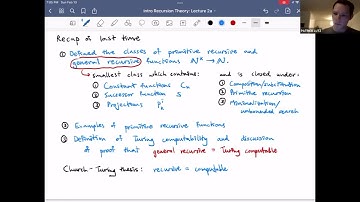 7:02 PM Sun Feb 13
Intro Recursion Theory: Lecture 2a
Recap of last time
① Defined the classes of primitive recursive and
general recursive functions ℕᵏ → ℕ.
smallest class which contains:
and is closed under:
① Constant functions Cₙ
① Composition/substitution
② Successor function S
② Primitive recursion
③ Projections
③ Minimalization/
unbounded search
② Examples of primitive recursive functions
③ Definition of Turing computability and discussion
of proof that general recursive = Turing computable
Church-Turing thesis: recursive = computable